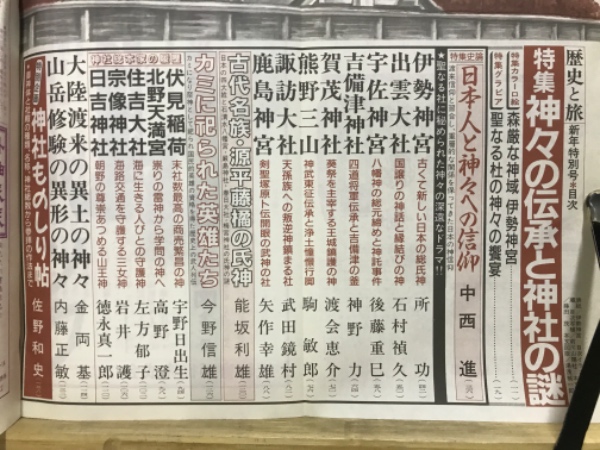 歴史と旅 新年特別号★目次
特集 神々の伝承と神社の謎
特集カラー口絵 森厳な神域 伊勢神宮
特集グラビア 聖なる杜の神々の饗宴
特集史論 日本人と神々への信仰 中西 進
★聖なる社に秘められた神々の深遠なドラマ!!
伊勢神宮 古くて新しい日本の総氏神 所 功
出雲大社 国譲りの神話と縁結びの神 石村禎久
宇佐神宮 八幡神の総元締めと神託事件 後藤重巳
吉備津神社 四道将軍伝承と吉備津の釜 神野 力
賀茂神社 葵祭を主宰する王城鎮護の神 渡会恵介
熊野三山 神武東征伝承と浄土憧憬行脚 駒 敏郎
諏訪大社 天孫族への叛逆神鎮まる社 武田鏡村
鹿島神宮 剣聖塚原卜伝開眼の武神の社 矢作幸雄
古代名族・源平藤橘の氏神 能坂利雄
カミに祀られた英雄たち 今野信雄
神社総本家の履歴
伏見稲荷 末社数最高の商売繁盛の神 宇野日出生
北野天満宮 祟りの雷神から学問の神へ 高野 澄
住吉大社 海に生きる人びとの守護神 左方郁子
宗像神社 海路交通を守護する三女神 岩井 護
日吉神社 朝野の尊崇あつめる山王神 徳永真一郎
大陸渡来の異土の神々 金両基
山岳修験の異形の神々 内藤正敏
神社ものしり帖 佐野和史